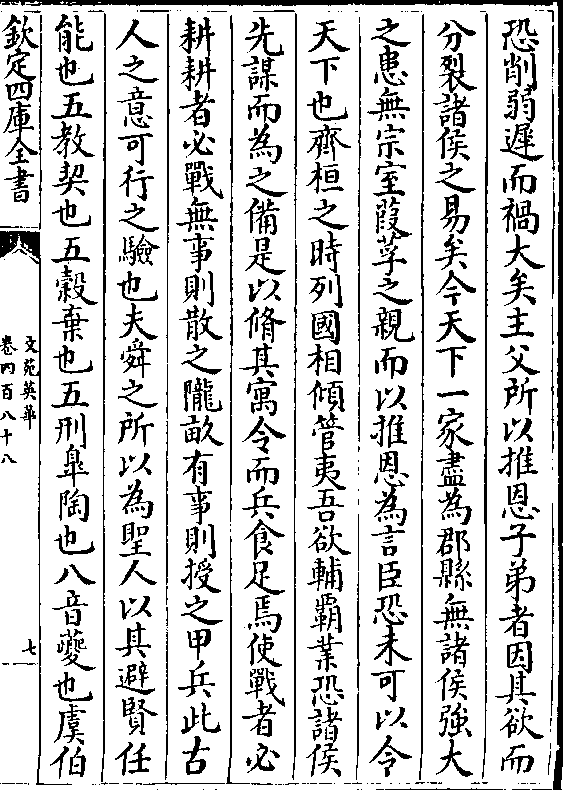 恐削弱遲而禍大矣主父所以推恩子弟者因其欲而
分裂諸侯之易矣今天下一家盡為郡縣無諸侯強大
之患無宗室葭莩之親而以推恩為言臣恐未可以令
天下也齊桓之時列國相傾管夷吾欲輔霸業恐諸侯
先謀而為之備是以脩其寓令而兵食足焉使戰者必
耕耕者必戰無事則散之隴畝有事則授之甲兵此古
人之意可行之驗也夫舜之所以為聖人以其避賢任
能也五教契也五穀棄也五刑臯陶也八音夔也虞伯
欽定四庫全書
文苑英華
卷四百八十八
七